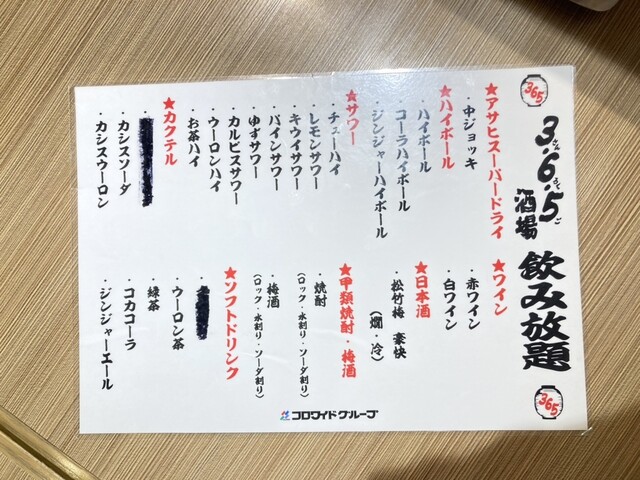 365
3.6.5
さん ろく ご
酒場
飲み放題
365
★アサヒスーパードライ
・中ジョッキ
★ハイボール
・ハイボール
・コーラハイボール
・ジンジャーハイボール
★サワー
・チューハイ
・レモンサワー
・キウイサワー
・パインサワー
・ゆずサワー
・カルピスサワー
・ウーロンハイ
・お茶ハイ
★カクテル
・カシスソーダ
・カシスウーロン
★ワイン
・赤ワイン
・白ワイン
★日本酒
・松竹梅 豪快
(燗・冷)
★甲類焼酎・梅酒
・焼酎
(ロック・水割り・ソーダ割り)
・梅酒
(ロック・水割り・ソーダ割り)
★ソフトドリンク
・ウーロン茶
・緑茶
・コカコーラ
・ジンジャーエール
コロワイドグループ